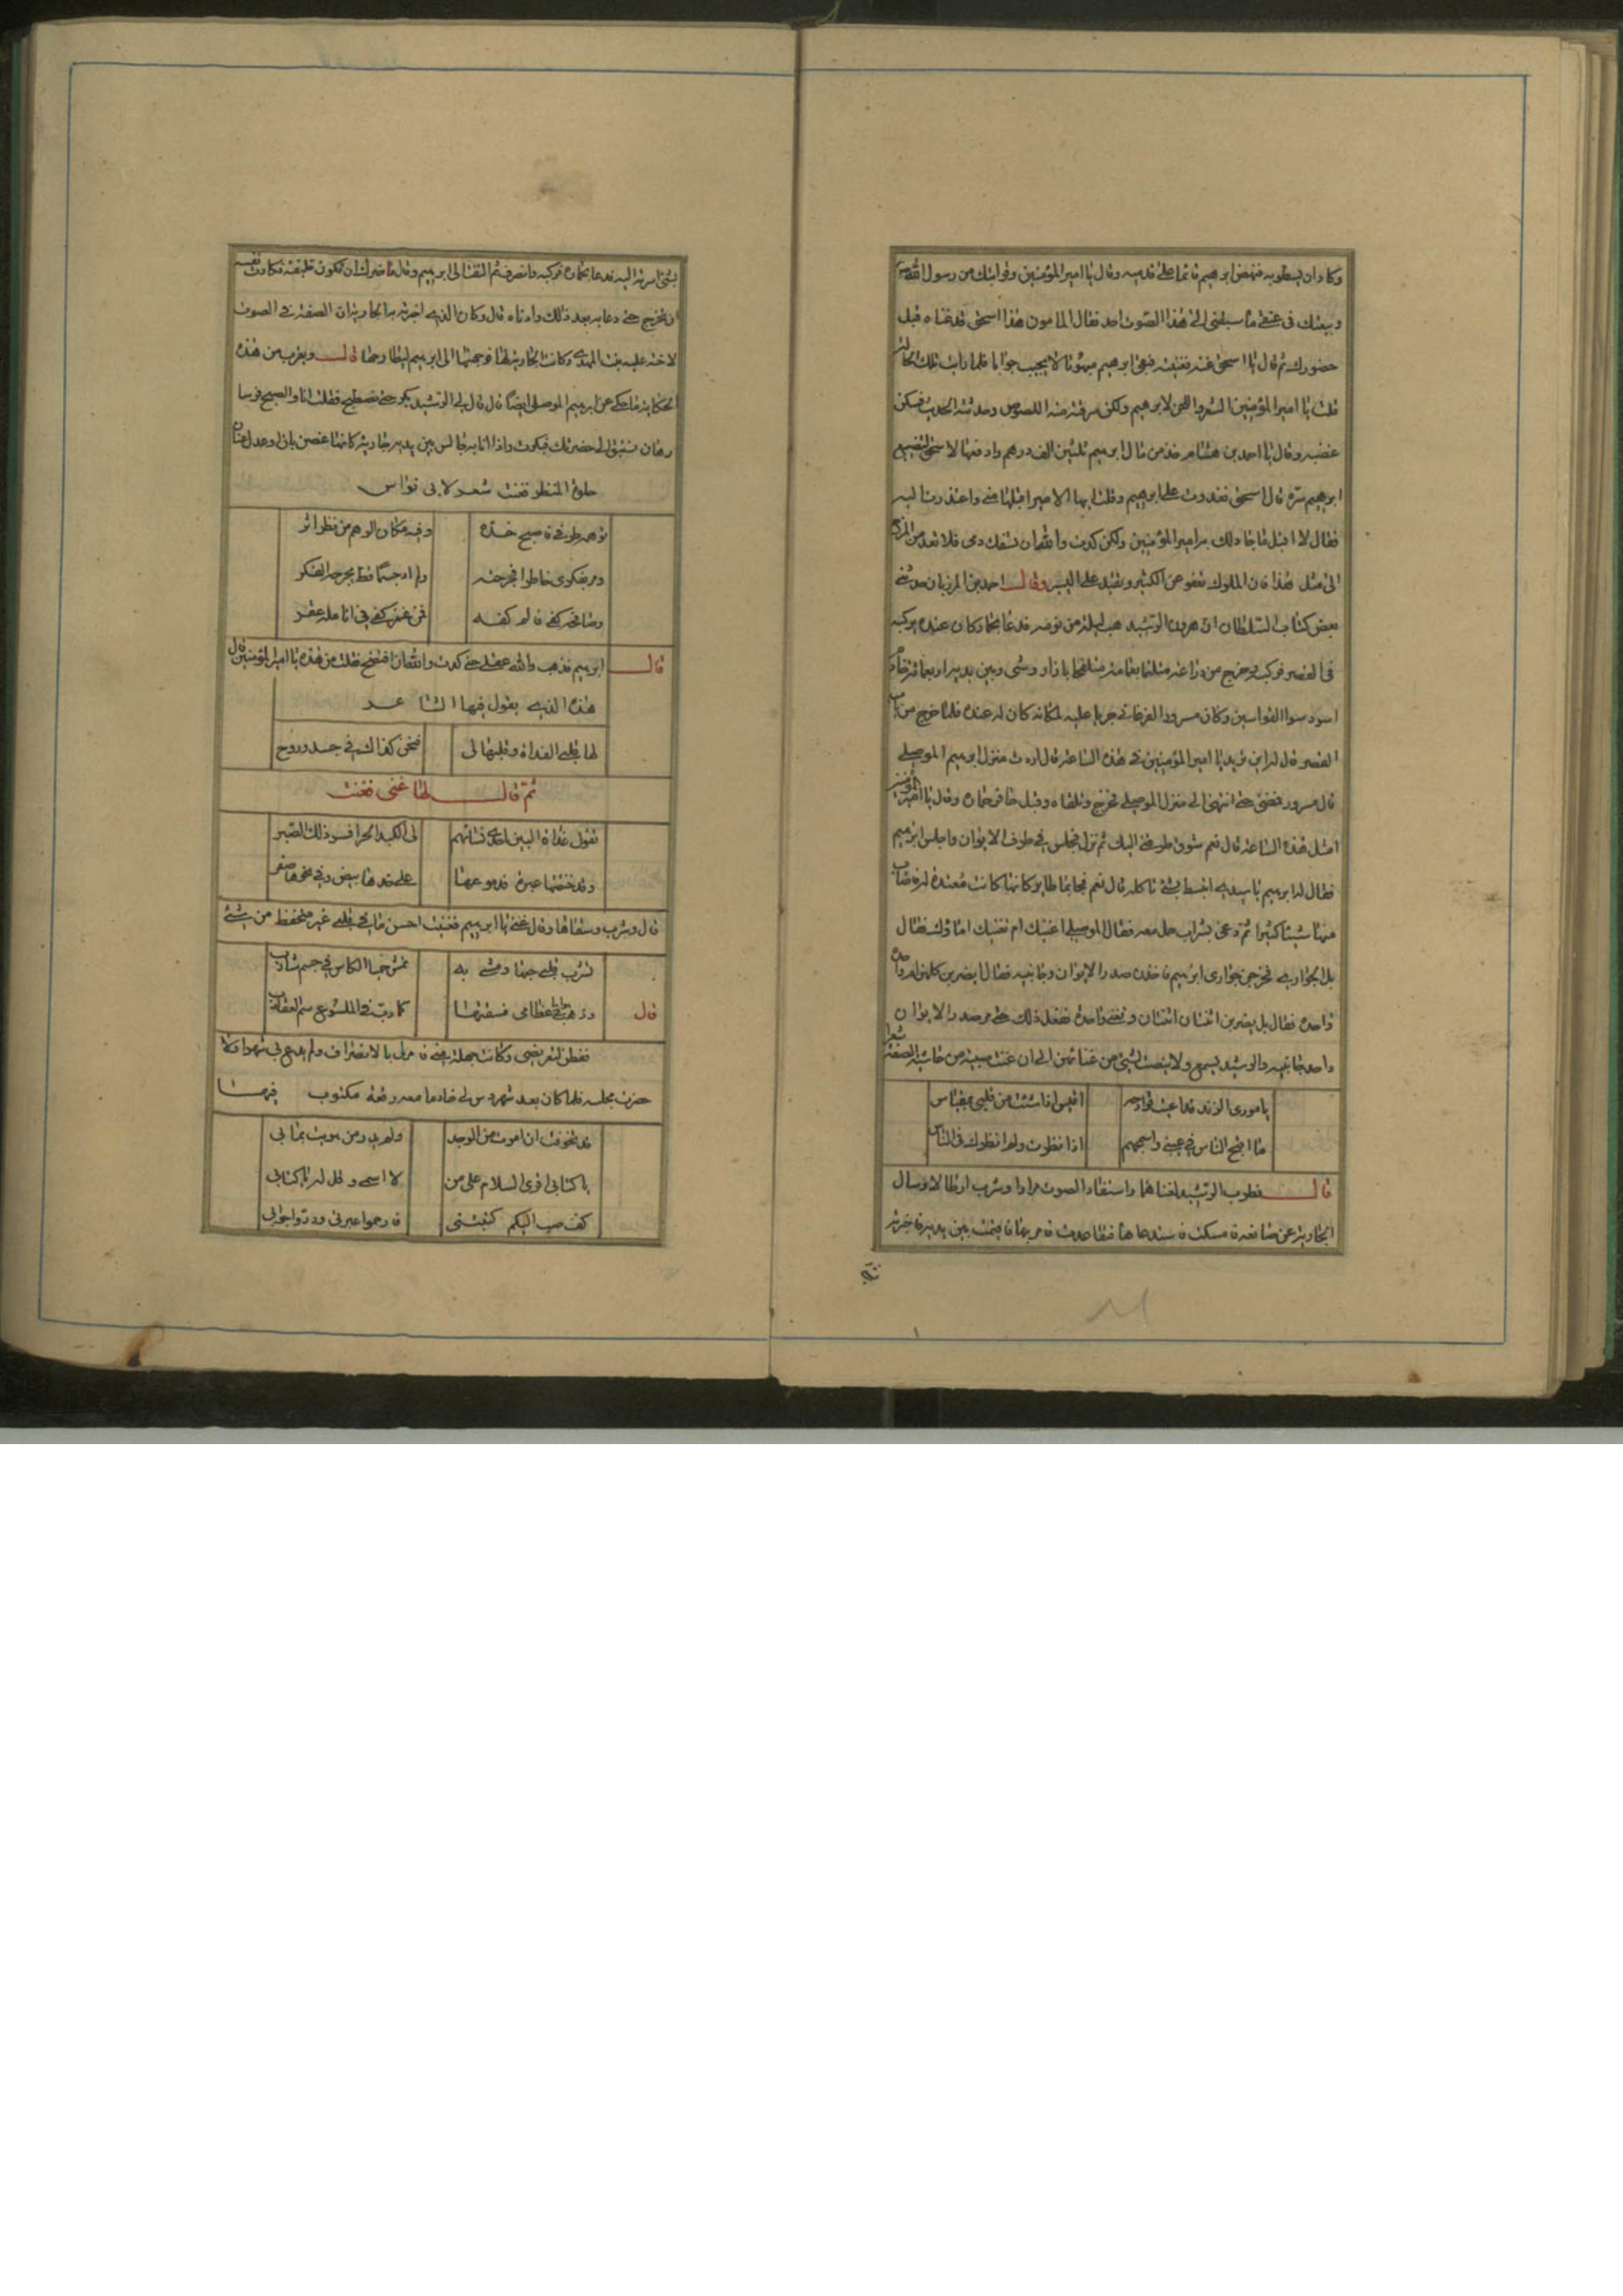 وكاد ان يسطو به فنهض ابرهيم قائما على قدميه وقال يا امير المؤمنين وقرابتك من رسول الله
وبيعتك فى عنقى ما سبقنى الى هذا الصوت احد فقال المامون هذا اسحق قد غناه قبل
حضورك ثم قال يا اسحق غنه فغنيته فبقى ابرهيم مبهوتا لا يجيب جوابا فلما رايت تلك الحالة
قلت يا امير المؤمنين الشعر واللحن لابرهيم ولكن سرقته منه اللصوص وحدثته الحديث فسكن
غضبه وقال يا احمد بن هشام خذ من مال ابرهيم ثلثين الف درهم وادفعها لاسحق لتضييع
ابرهيم سره قال اسحق فغدوت على ابرهيم وقلت ايها الامير اقبلها منى واعتذرت اليه
فقال لا اقبل ما جاد لك به امير المؤمنين ولكن كدت والله ان تسفك دمى فلا تعد من المزح
الى مثل هذا فان الملوك تعفو عن الكثير وتقتل على اليسير وقال احمد بن المرزبان حدثنى
بعض كتاب السلطان ان هرون الرشيد هب ليلة من نومه فدعا بحمار كان عنده يركبه
فى القصر فركبه وخرج من دراعة متلثما بعمامة متلحفا بازار وشى وبين يديه اربعمائة خادم
اسود سوا الفراشين وكان مسرور الفرغانى جريا عليه لمكانة كان له عنده فلما خرج من باب
القصر قال له اين تريد يا امير المؤمنين فى هذه الساعة قال اردت منزل ابرهيم الموصلى
قال مسرور فمضى حتى انتهى الى منزل الموصلى فخرج وتلقاه وقبل حافر حماره وقال يا امير المؤمنين
امثل هذه الساعة قال نعم شوق طرق بى اليك ثم نزل فجلس فى طرف الايوان واجلس ابرهيم
فقال له ابرهيم يا سيدى انبسط بشئ تاكله قال نعم فجا بما طاير كانها كانت معدة له فاصاب
منها شيئا كثيرا ثم دعى بشراب حمل معه فقال الموصلى اغنيك ام تغنيك اماؤك فقال
بل الجوارى فخرجن جوارى ابرهيم فاخذن صدر الايوان وجانبيه فقال ايضربن كلهن ام واحدة
واحدة فقال بل يضربن اثنتان اثنتان وتغنى واحدة ففعل ذلك حتى مر صدر الايوان
واحد جانبيه والرشيد يسمع ولا ينصت لشئ من غنائهن الى ان غنت صبية من حاشية الصفة شعرا
يا مورى الزند قد اعيت قوادحه
اقبس اذا شئت من قلبى بمقباس
ما اقبح الناس فى عينى واسمجهم
اذا نظرت ولم انظرك فى الناس
قال فطرب الرشيد لغناها واستعاد الصوت مرارا وشرب ارطالا وسال
الجارية عن صانعه فامسكت فاستدعاها فتقاعدت فامر بها فاقيمت بين يديه فاخبرته
بشئ اسرته اليه فدعا بحماره فركبه وانصرف ثم التفت الى ابرهيم وقال ما ضرك ان تكون خليفة فكادت نفسه
ان تخرج حتى دعا به بعد ذلك وادناه قال وكان الذى اخبرته به الجارية ان الصنعة فى الصوت
لاخته علية بنت المهدى وكانت الجارية لها فوجهتها الى ابرهيم ليطارحها قال ويقرب من هذه
الحكاية ما حكى عن ابرهيم الموصلى ايضا قال قال لى الرشيد بكر حتى نصطبح فقلت انا والصبح فرسا
رهان نستبق الى حضرتك فبكرت واذا انا به جالس بين يديه جارية كانها غصن بان او عدل عنان
حلوة المنظر فغنت شعر لابى نواس
توهمه طرفى فاصبح خده
وفيه مكان الوهم من نظرى اثر
ومر بفكرى خاطرا فجرحته
ولم ار جسما قط يجرحه الفكر
وصافحه كفى فالم كفه
فمن غمز كفى فى انامله عقر
قال ابرهيم فذهب والله عقلى حتى كدت والله ان افتضح فقلت من هذه يا امير المؤمنين قال
هذه الذى يقول فيها الشاعر
لها قلبى الغداة وقلبها لى
فنحن كذاك فى جسد وروح
ثم قال لها غنى فغنت
تقول غداة البين احدى نسائهم
لى الكبد الحرا فسر ذلك الصبر
وقد خنقتها عبرة فدموعها
على خدها بيض وفى نحرها صفر
قال وشرب وسقاها وقال غنى يا ابرهيم فغنيت احسن ما فى قلبى غير متحفظ من شئ
تشرب قلبى حبها ومشى به
تمشى حميا الكاس فى جسم شارب
قال
ودب هواها فى عظامى فشفها
كما دب فى الملسوع سم العقارب
ففطن لتعريضى وكانت جهلة منى فامرنى بالانصراف ولم يدع بى شهرا ولا
حضرت مجلسه فلما كان بعد شهر دس لى خادما معه رقعة مكتوب فيها
قد تخوفت ان اموت من الوجد
ولم يدر من هويت بما بى
يا كتابى اقرى السلام على من
لا اسمى وقل له يا كتابى
كف صب اليكم كتبتنى
فارحموا عبرتى وردوا جوابى
بشئ